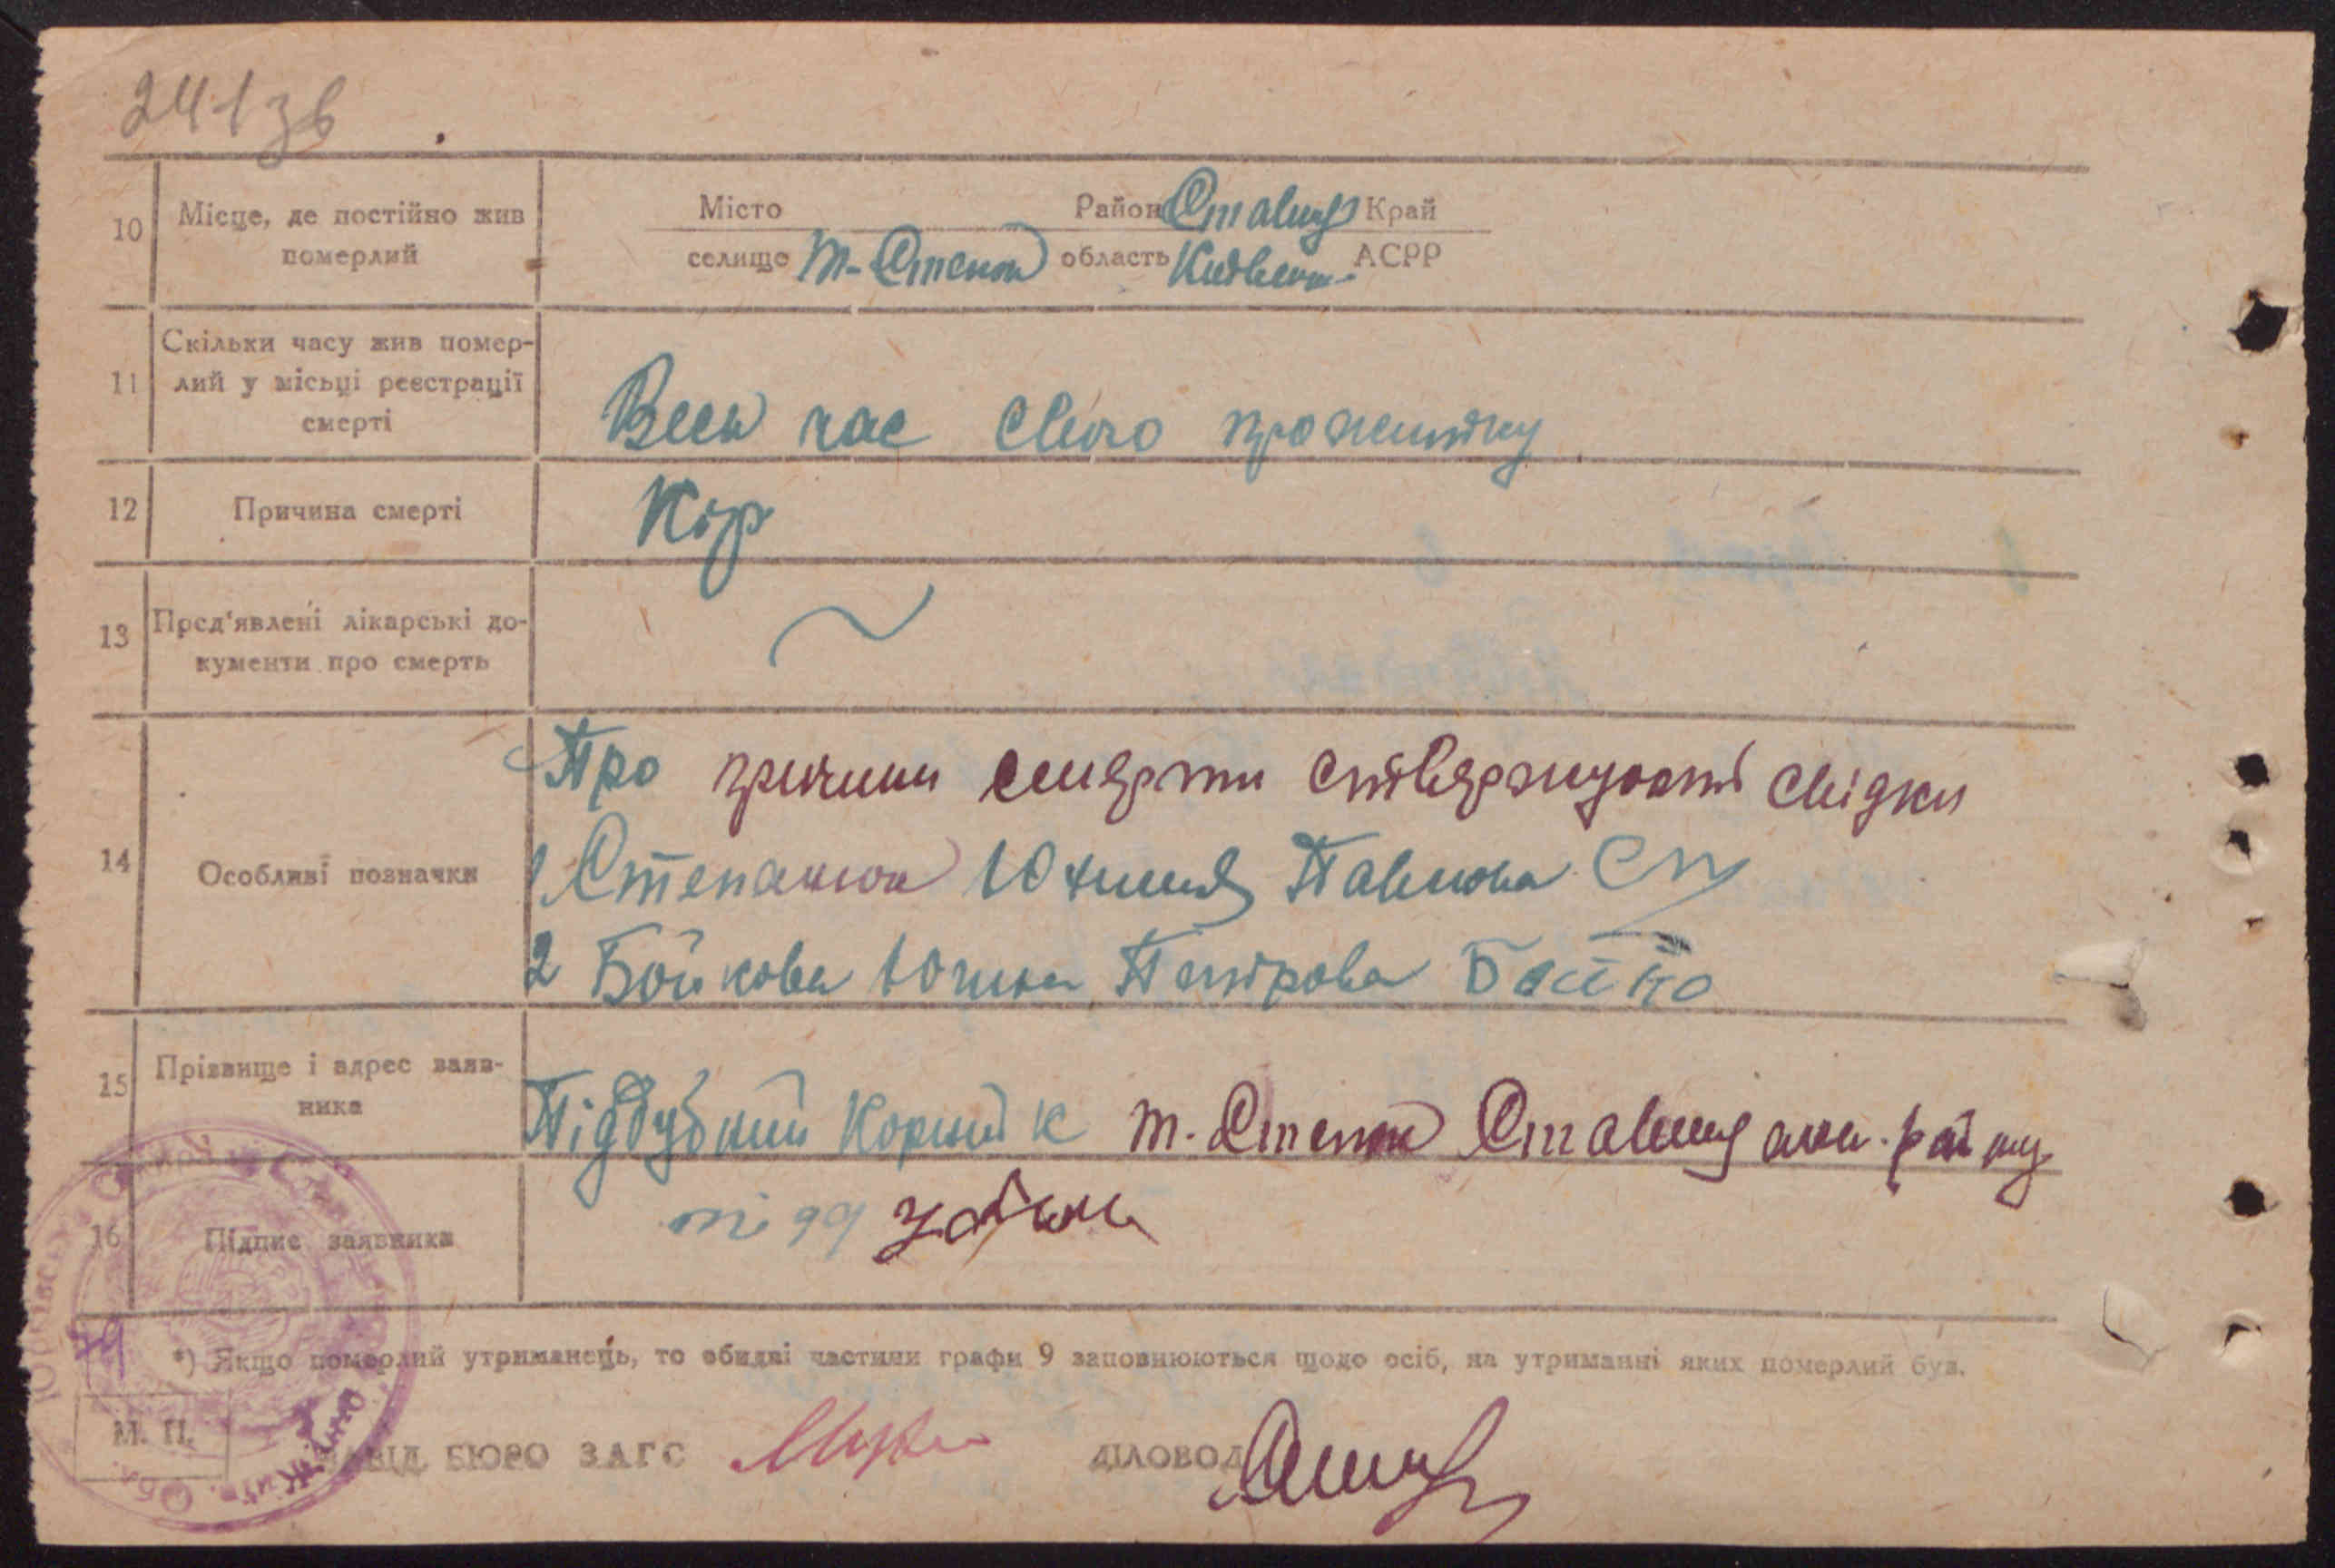 241зв
10 Місце, де постійно жив померлий
Місто Район Ставищ Край
селище м-Степок область Київськ. АСРР
11 Скільки часу жив помер-
лий у місьці реєстрації
смерті
Весь час свого прожитку
12 Причина смерті Кір
13 Пред'явлені лікарські до-
кументи про смерть
14 Особливі позначки
Про причини смерти стверджують свідки
1 Степанюк Юхимія Павлова
2 Бойкова Юхима Петрова Бойко
15 Прізвище і адрес заяв-
ника
Піддубний Корній К м. Степок Ставищанск. району
16 Підпис заявника
*) Якщо померлий утриманець, то обидві частини графи 9 заповнюються щодо осіб, на утриманні яких померлий був.
М. П. ЗАВІД. БЮРО ЗАГС ДІЛОВОД